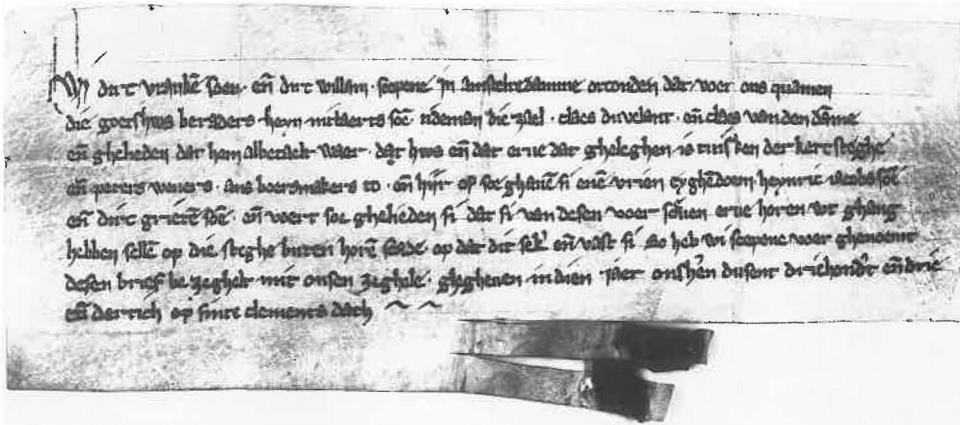 Wi dirc vrankē soen · eñ dirc willam · scepenē in amstelredamme orconden dat voer ons quamen
die goeshuus beraders heyn milaerts soē · tideman die zael · claes duvelant · eñ claes van den dāme
eñ ghelieden dat hem albetaelt waer · dat hws eñ dat erue dat gheleghen is tuisken der kercsteghe
eñ peters weuers · ans boersmakers to · eñ hijr op soe ghauē si enē vrien eyghēdoem heynric iacobs soē
eñ dirc grietē soē · eñ voert soe ghelieden si dat si van desen voer erue horen wt ghang
hebben sellē op die steghe buten horē · op dat dit eñ vast si so heb wi scepene voer ghenoemt
desen brief be zeghelt mit onsen zeghelē · ghegheuen in dien iaer onshēn dusent driehondt eñ drie
eñ dertich op sinte clements dach